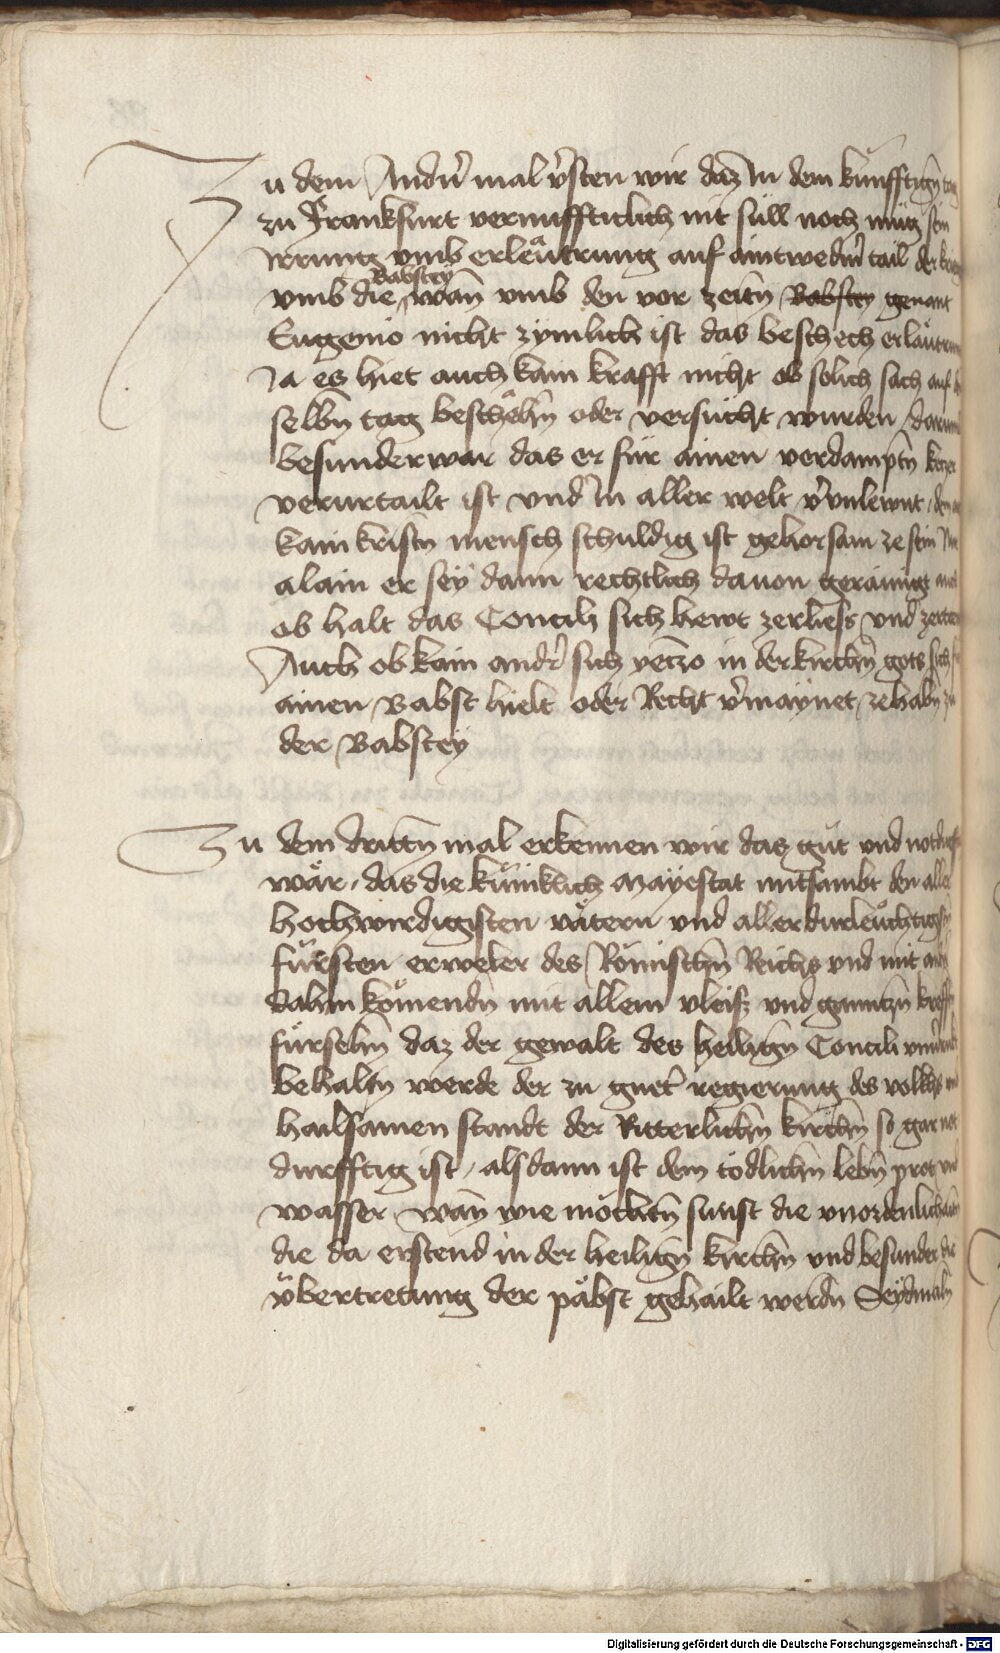 Zu dem Andn̄ mal v̄sten wir daz In dem kunfftign̄
zu Franckfurt vernufftiklich nit süll noch müg sein
Irrung vmb erleůtrung auf aintwedm̄ tail der krieg
vmb die Babstey wan̄ vmb den vor zeitn̄ Babstey genant
Eugenio nicht zymlich ist das beschech erläutrun
Ja es hiet auch kain krafft nicht ob solich sach auf
selbn̄ tag beschehn̄ oder versucht wurden / darumb
besunderwar das er für ainen verdamptn̄ keczer
verurtailt ist vnd In aller welt v̄vnlewnt / dem
kain kristn̄ mensch schuldig ist gehorsam ze sein
alain er sey dann rechtlich dauon gerainig
ob halt das Concily sich hewt zerliess vnd
Auch ob kain andr̄ sich yeczo in der kirchn̄ gots sich
ainen Babst hielt oder Recht v̄maynet zehabn̄ zu
der Babstey
Zu dem drittn̄ mal erkennen wir das gut vnd notdurft
wär / das die kůniklich Mayestat mitsambt den aller
hochwirdigisten vätern vnd allerdurleůchtigstn̄
fürsten erweler des Römischn̄ Reichs vnd mit andn̄
dahin komendn̄ mit allem vleiss vnd ganntzn̄ krefftn̄
fürsehn̄ daz der gewalt des heilign̄ Concili
behaltn̄ werde der zu gueter regierung des volkhs vnd
hailsamen standt der Ritterlichn̄ kirchn̄ so gar not
durfftig ist / als dann ist dem tödlichn̄ lebn̄ prot vnd
wasser / wan̄ wie möchtn̄ sunst die vnordenlichaitn̄
die da erstend in der heilign̄ kirchn̄ vnd besunder die
vbertretung der päbst gehailt werdn̄ Seydmaln̄
Digitalisierung gefördert durch die Deutsche Forschungsgemeinschaft - DFG